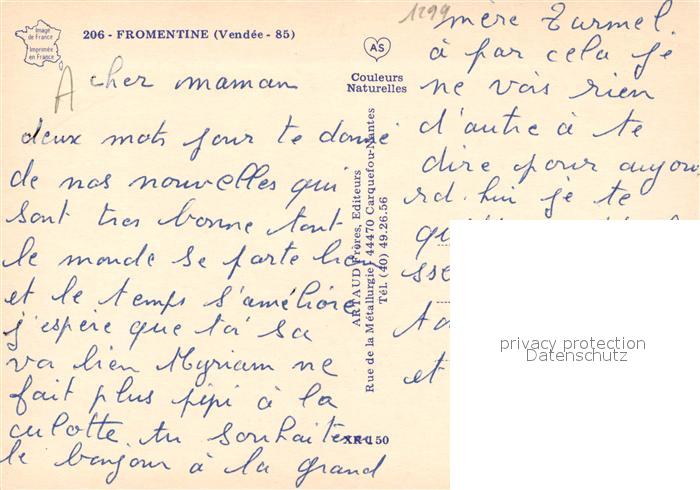 Image
de France
Imprimée
en France
206 - FROMENTINE (Vendée - 85)
AS
Couleurs
Naturelles
ARTAUD Frères, Editeurs
Rue de la Métallurgie, 44470 Carquefou-Nantes
Tél. (40) 49.26.56
XR 150
1299
A cher maman
deux mots pour te donné
de nos nouvelles qui
sont tres bonne tout
le monde se porte bien
et le temps s'améliore
j'espère que toi sa
va bien Myriam ne
fait plus pipi à la
culotte tu souhaitera
le bonjour à la grand
mère Turmel.
à par cela je
ne vois rien
d'autre à te
dire pour aujou
rd.hui je te
qu
sse
ta
et
privacy protection
Datenschutz